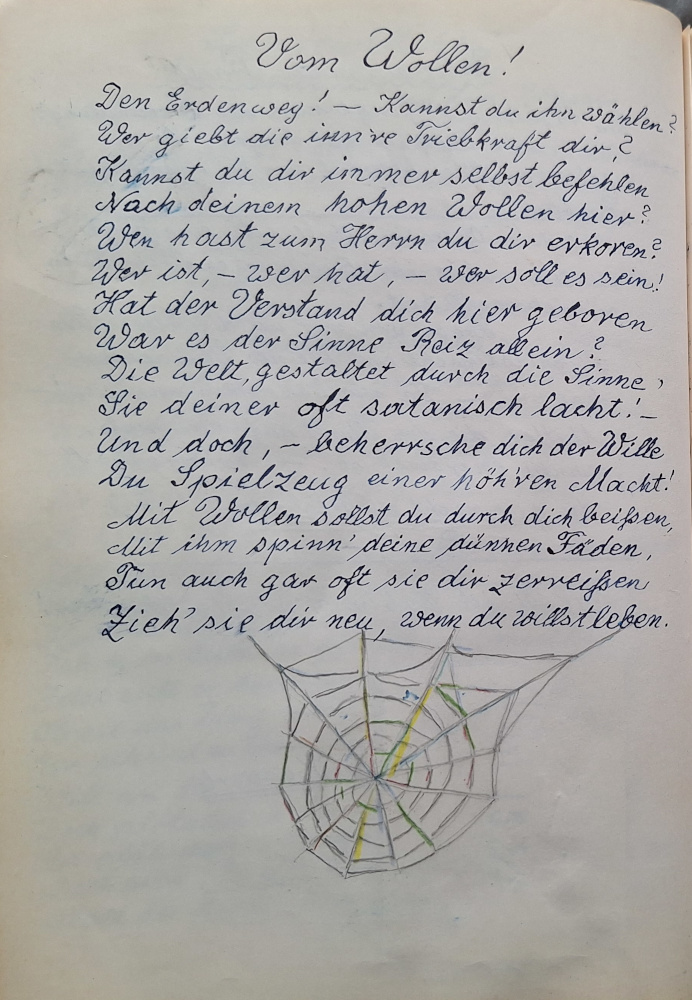 Vom Wollen!
Den Erdenweg! – Kannst du ihn wählen?
Wer giebt die inn're Triebkraft dir?
Kannst du dir immer selbst befehlen
Nach deinem hohen Wollen hier?
Wen hast zum Herrn du dir erkoren?
Wer ist, – wer hat, – wer soll es sein!
Hat der Verstand dich hier geboren
War es der Sinne Reiz allein?
Die Welt, gestaltet durch die Sinne,
Sie deiner oft satanisch lacht! –
Und doch, – beherrsche dich der Wille
Du Spielzeug einer höh'ren Macht!
Mit Wollen sollst du durch dich beißen,
Mit ihm spinn' deine dünnen Fäden,
Tun auch gar oft sie dir zerreißen
Zieh' sie dir neu, wenn du willst leben.